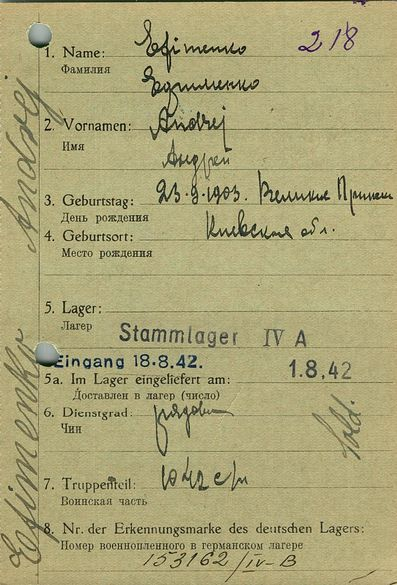 218
1. Name: Efimenko
Фамилия
Ефименко
2. Vornamen: Andrej
Имя
Андрей
3. Geburtstag: 23.9.1903. Великие
День рождения
4. Geburtsort: Киевская обл.
Место рождения
5. Lager:
Лагер
Stammlager IV A
Eingang 18.8.42.
1.8.42
5a. Im Lager eingeliefert am:
Доставлен в лагер (число)
6. Dienstgrad: рядовой
Чин
Sold.
7. Truppenteil:
Воинская часть
8. Nr. der Erkennungsmarke des deutschen Lagers:
Номер военнопленного в германском лагере
153162/IV-B
Efimenko Andrej